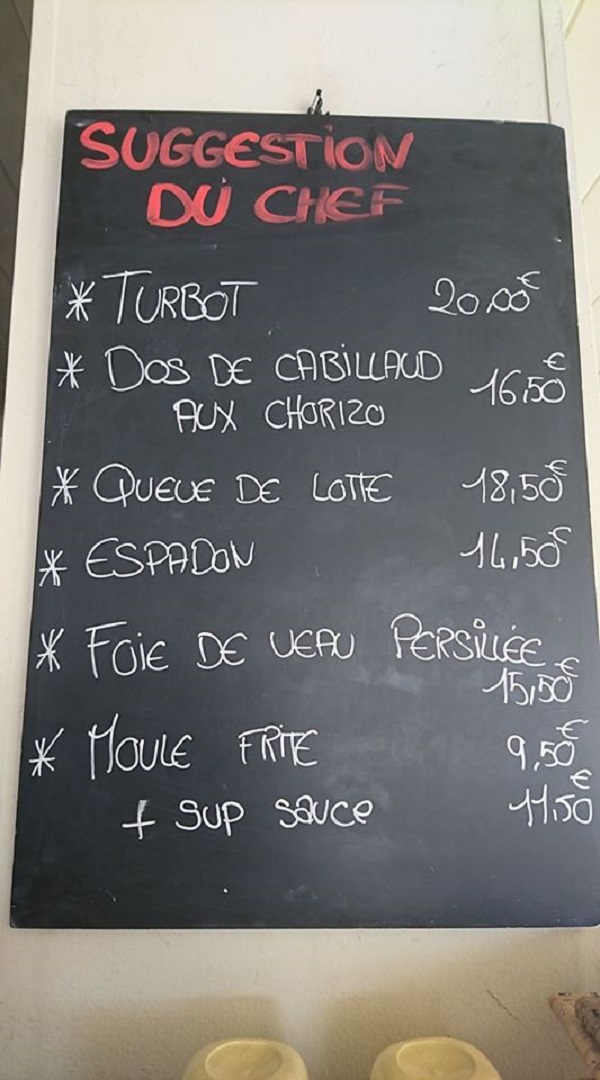 SUGGESTION
DU CHEF
* TURBOT 20,00€
* DOS DE CABILLAUD 16,50€
AUX CHORIZO
* QUEUE DE LOTTE 18,50€
* ESPADON 14,50€
* FOIE DE VEAU PERSILLÉE
15,50€
* MOULE FRITE 9,50€
+ SUP SAUCE 11,50€